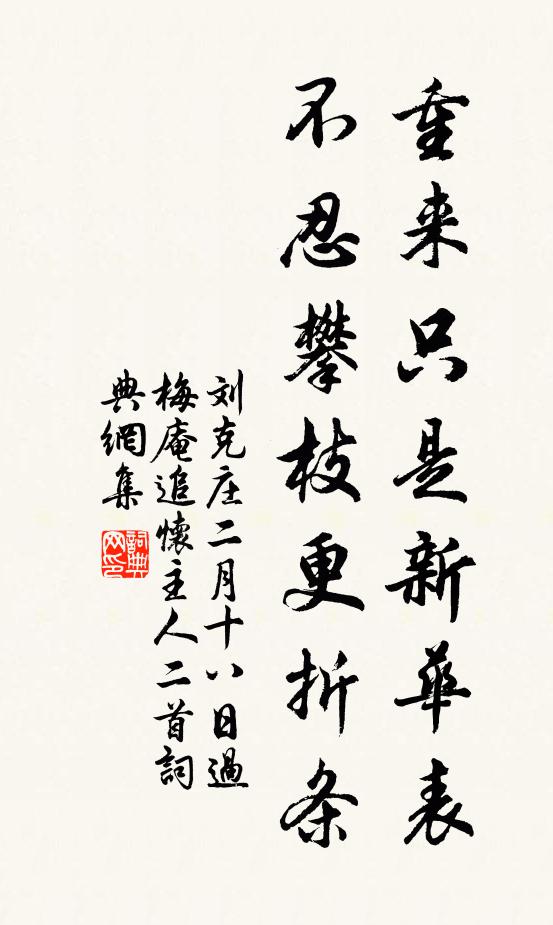 重来只是新華表
不忍攀枝更折条
刘克庄二月十八日過
梅庵追懷主人二首詞
典網集
詞典网印